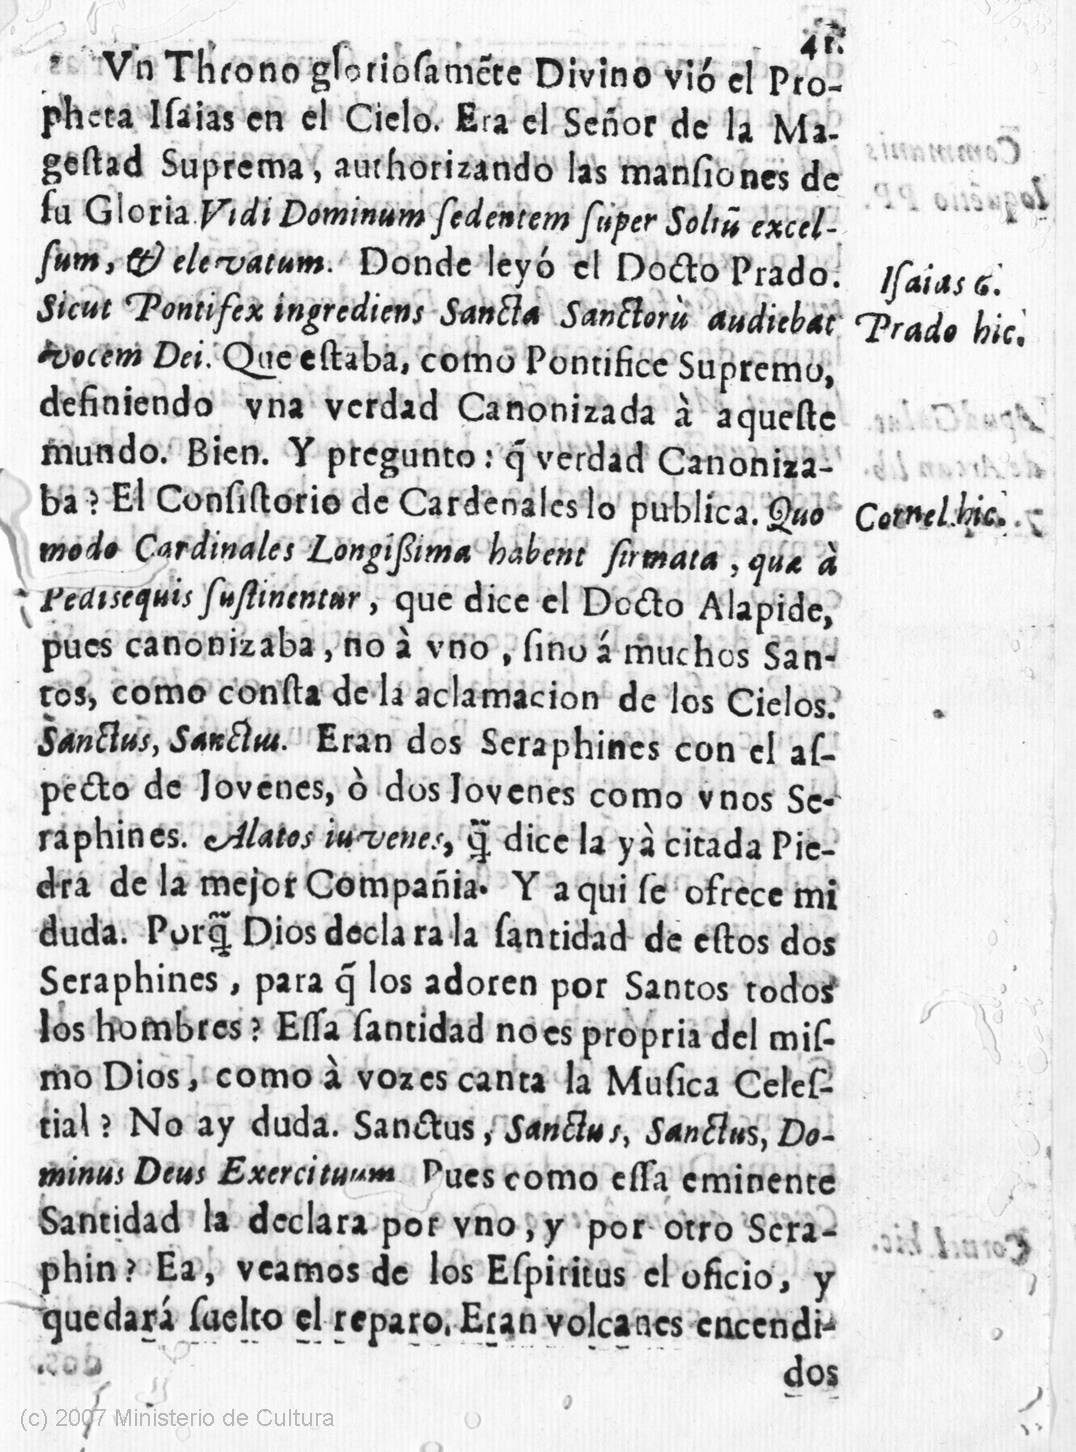 41.
Vn Throno gloriosamẽte Divino vió el Pro-
pheta Isaias en el Cielo. Era el Señor de la Ma-
gestad Suprema, authorizando las mansiones de
su Gloria. Vidi Dominum sedentem super Soliũ excel-
sum, & elevatum. Donde leyó el Docto Prado.
Isaias 6.
Sicut Pontifex ingrediens Sancta Sanctorù audiebat
Prado hic.
vocem Dei. Que estaba, como Pontifice Supremo,
definiendo vna verdad Canonizada à aqueste
mundo. Bien. Y pregunto: q̃ verdad Canoniza-
ba? El Consistorio de Cardenales lo publica. Quo
Cornel. hic.
modo Cardinales Longißima habent sirmata, quæ à
Pedisequis sustinentur, que dice el Docto Alapide,
pues canonizaba, no à vno, sino á muchos San-
tos, como consta de la aclamacion de los Cielos.
Sanctus, Sanctus. Eran dos Seraphines con el as-
pecto de Jovenes, ò dos Jovenes como vnos Se-
raphines. Alatos iuvenes, q̃ dice la yà citada Pie-
dra de la mejor Compañia. Y aqui se ofrece mi
duda. Porq̃ Dios declara la santidad de estos dos
Seraphines, para q̃ los adoren por Santos todos
los hombres? Essa santidad no es propria del mis-
mo Dios, como à vozes canta la Musica Celes-
tial? No ay duda. Sanctus, Sanctus, Sanctus, Do-
minus Deus Exercituum. Pues como essa eminente
Santidad la declara por vno, y por otro Sera-
phin? Ea, veamos de los Espiritus el oficio, y
quedará suelto el reparo. Eran volcanes encendi-
dos
(c) 2007 Ministerio de Cultura